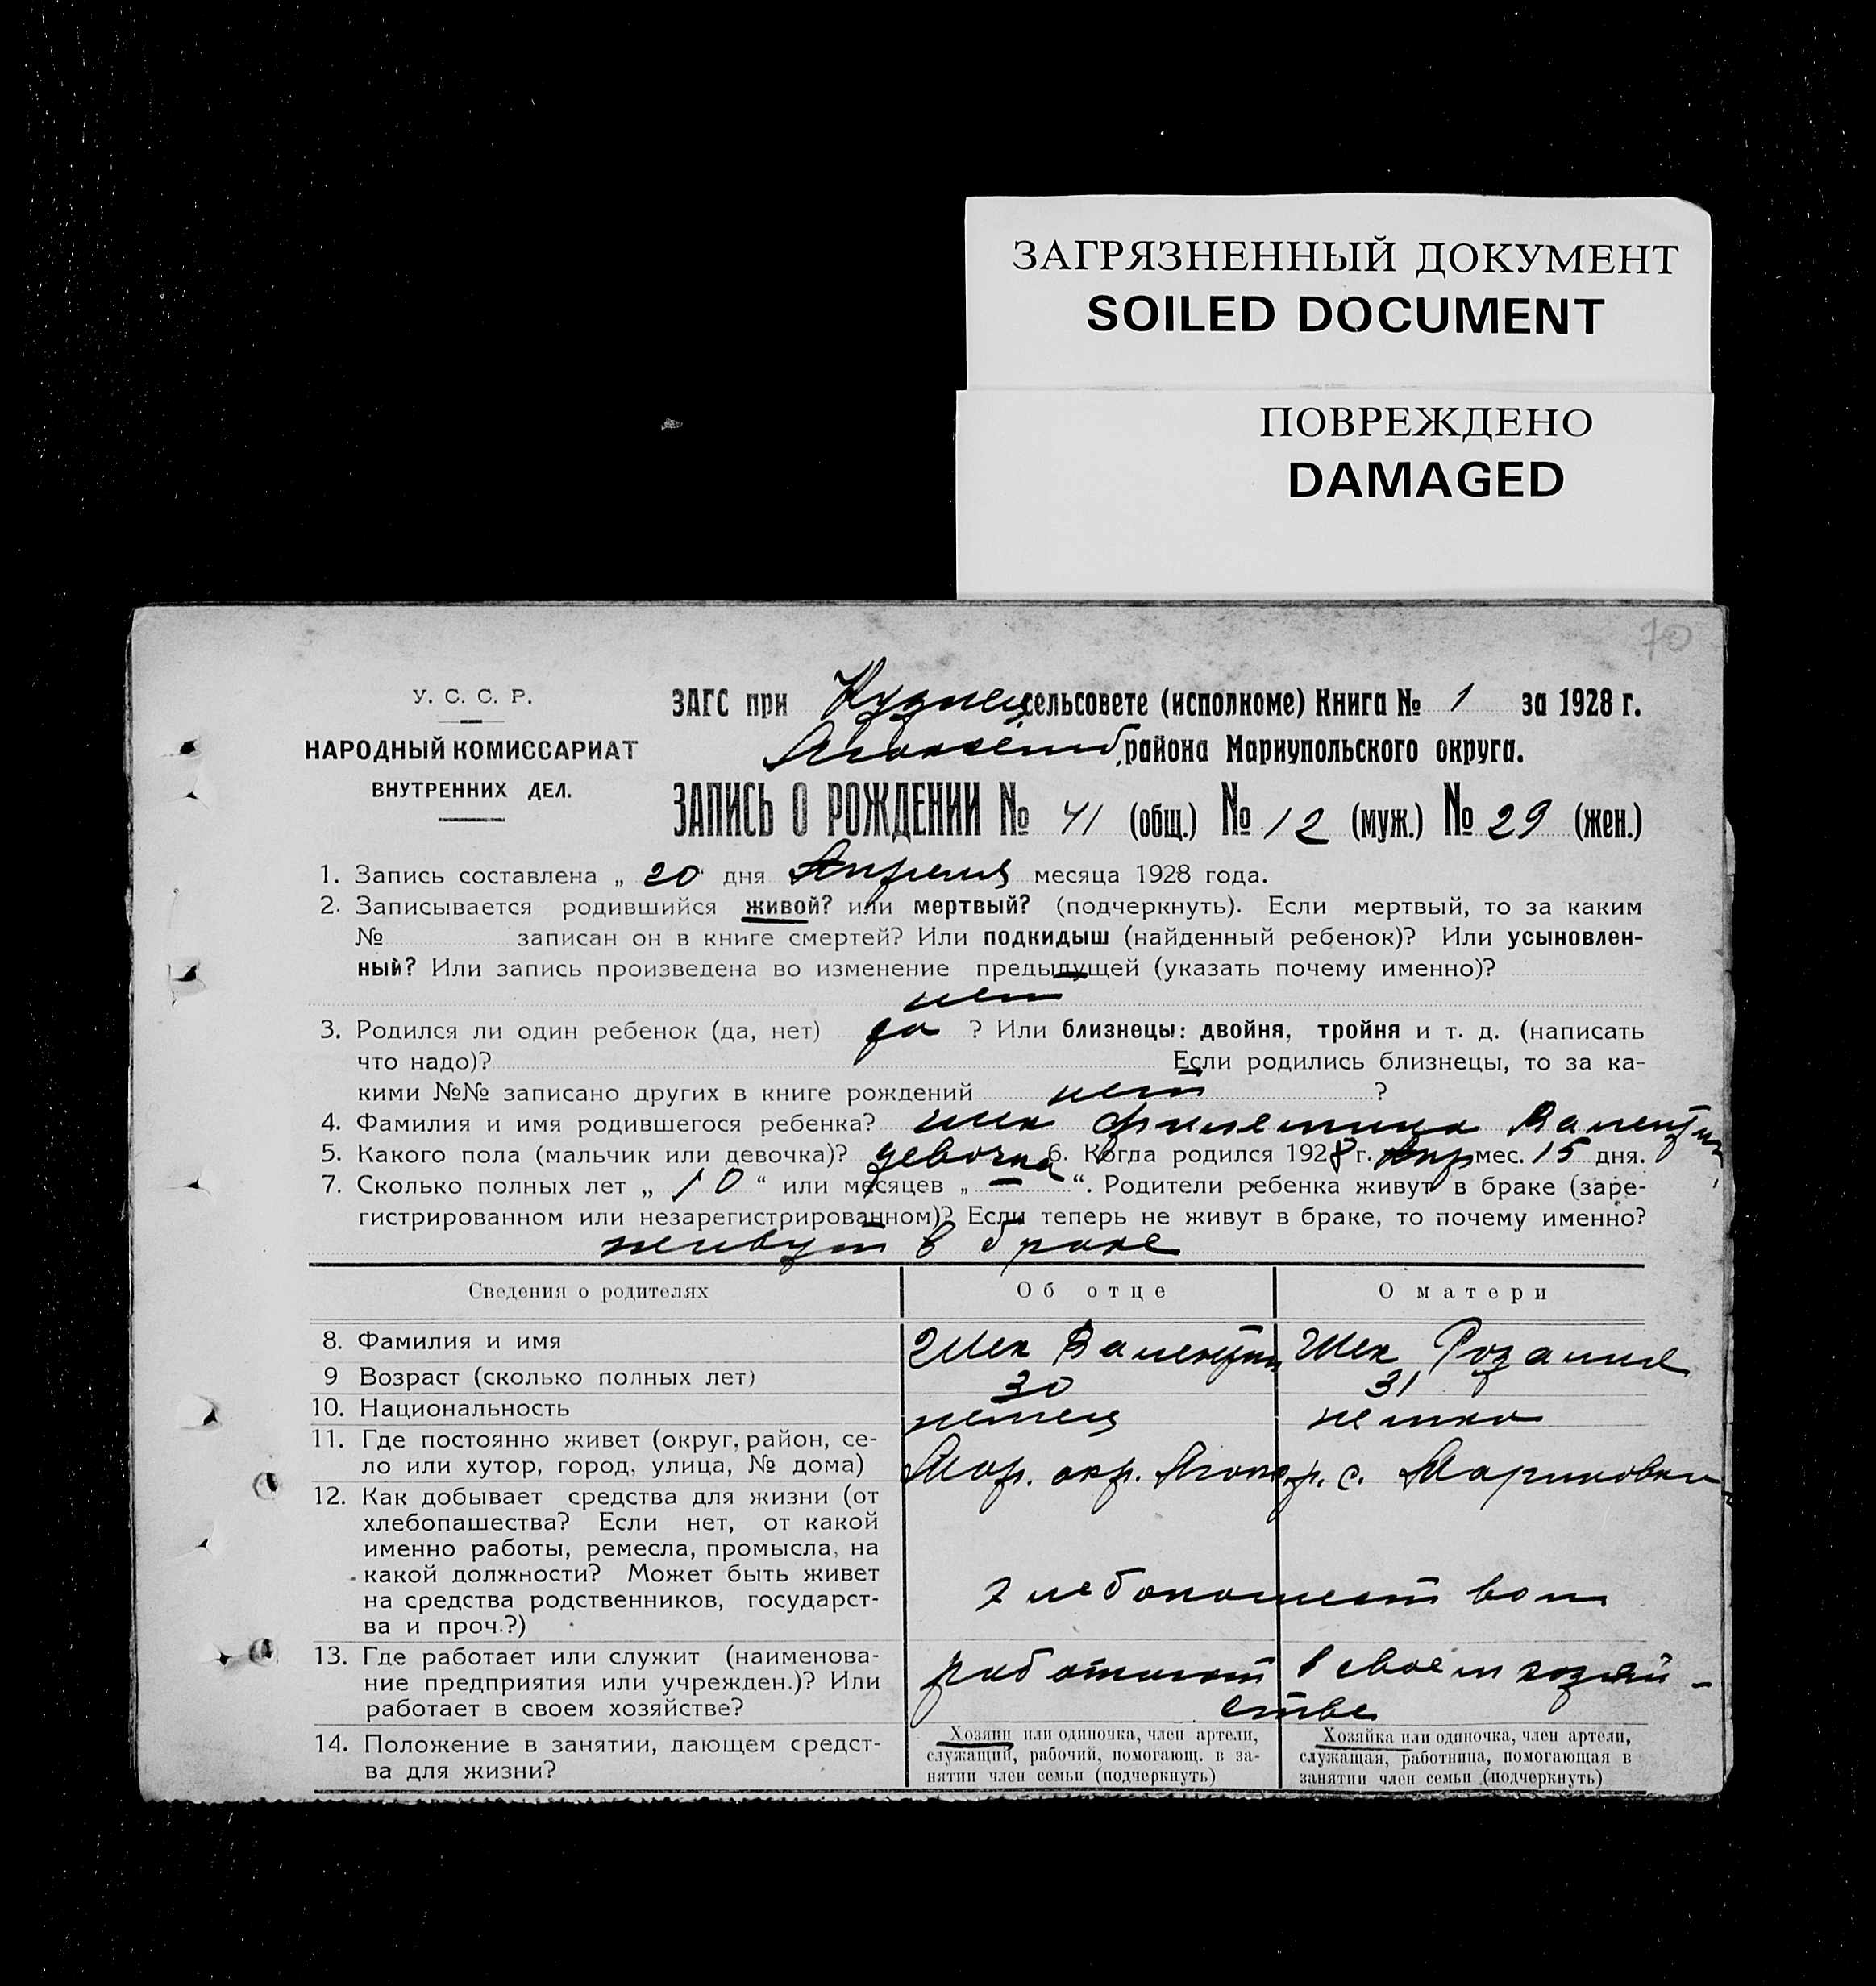 ЗАГРЯЗНЕННЫЙ ДОКУМЕНТ
SOILED DOCUMENT
ПОВРЕЖДЕНО
DAMAGED
70
У. С. С. Р.
НАРОДНЫЙ КОМИССАРИАТ
ВНУТРЕННИХ ДЕЛ.
ЗАГС при Кузнец. сельсовете (исполкоме) Книга № 1 за 1928 г.
района Мариупольского округа.
ЗАПИСЬ О РОЖДЕНИИ № 41 (общ.) № 12 (муж.) № 29 (жен.)
1. Запись составлена „ 20 “ дня Апреля месяца 1928 года.
2. Записывается родившийся живой? или мертвый? (подчеркнуть). Если мертвый, то за каким
№ записан он в книге смертей? Или подкидыш (найденный ребенок)? Или усыновлен-
ный? Или запись произведена во изменение предыдущей (указать почему именно)?
нет
3. Родился ли один ребенок (да, нет) да ? Или близнецы: двойня, тройня и т. д. (написать
что надо)? Если родились близнецы, то за ка-
кими №№ записано других в книге рождений нет ?
4. Фамилия и имя родившегося ребенка? Шек Валентин
5. Какого пола (мальчик или девочка)? девочка 6. Когда родился 1928 г. Апр мес. 15 дня.
7. Сколько полных лет „ 10 “ или месяцев „ — “. Родители ребенка живут в браке (заре-
гистрированном или незарегистрированном)? Если теперь не живут в браке, то почему именно?
живут в браке
Сведения о родителях Об отце О матери
8. Фамилия и имя Шек Валентин Шек Розалия
9 Возраст (сколько полных лет) 30 31
10. Национальность немец немка
11. Где постоянно живет (округ, район, се-
ло или хутор, город, улица, № дома) Мар. окр. р. с. Мариновки
12. Как добывает средства для жизни (от
хлебопашества? Если нет, от какой
именно работы, ремесла, промысла, на
какой должности? Может быть живет
на средства родственников, государст-
ва и проч.?)
хлебопашеством
13. Где работает или служит (наименова-
ние предприятия или учрежден.)? Или
работает в своем хозяйстве?
работают в своем хозяй-
стве
14. Положение в занятии, дающем средст-
ва для жизни?
Хозяин или одиночка, член артели,
служащий, рабочий, помогающ. в за-
нятии член семьи (подчеркнуть)
Хозяйка или одиночка, член артели,
служащая, работница, помогающая в
занятии член семьи (подчеркнуть)